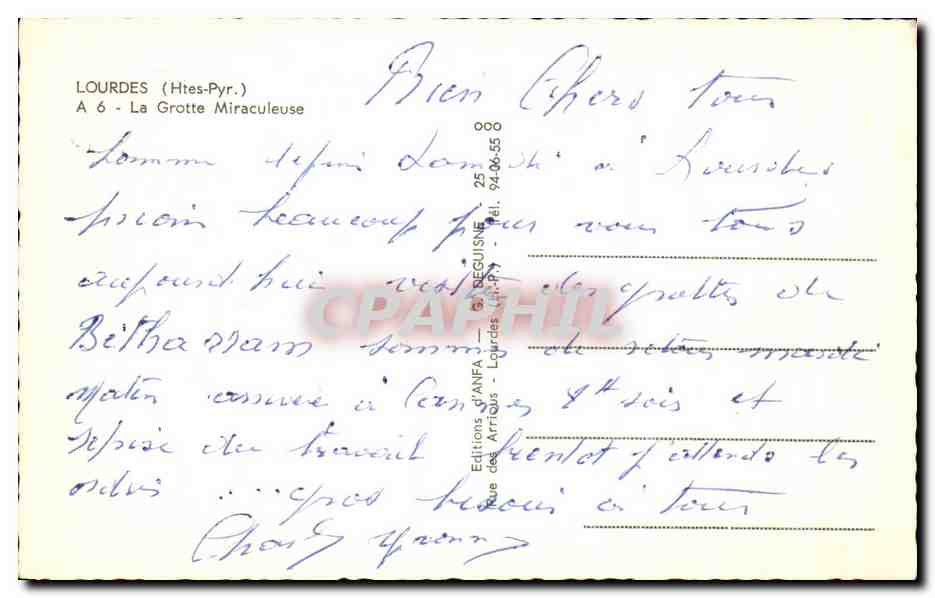 LOURDES (Htes-Pyr.)
A 6 - La Grotte Miraculeuse
Bien Chers tous
Sommes depuis Samedi à Lourdes
prions beaucoup pour vous tous
aujourd'hui visite des grottes de
Betharram sommes de retour mardi
Matin arrivée à Cannes 1H soir et
reprise du travail bientot j'attends les
ordres .... gros besoin à tous
Charly Yvonne
Editions d'ANFA — G. DEGUISNE - 25
Rue des Arrious - Lourdes (H.-P.) - Tél. 94-06-55
CPAPHIL